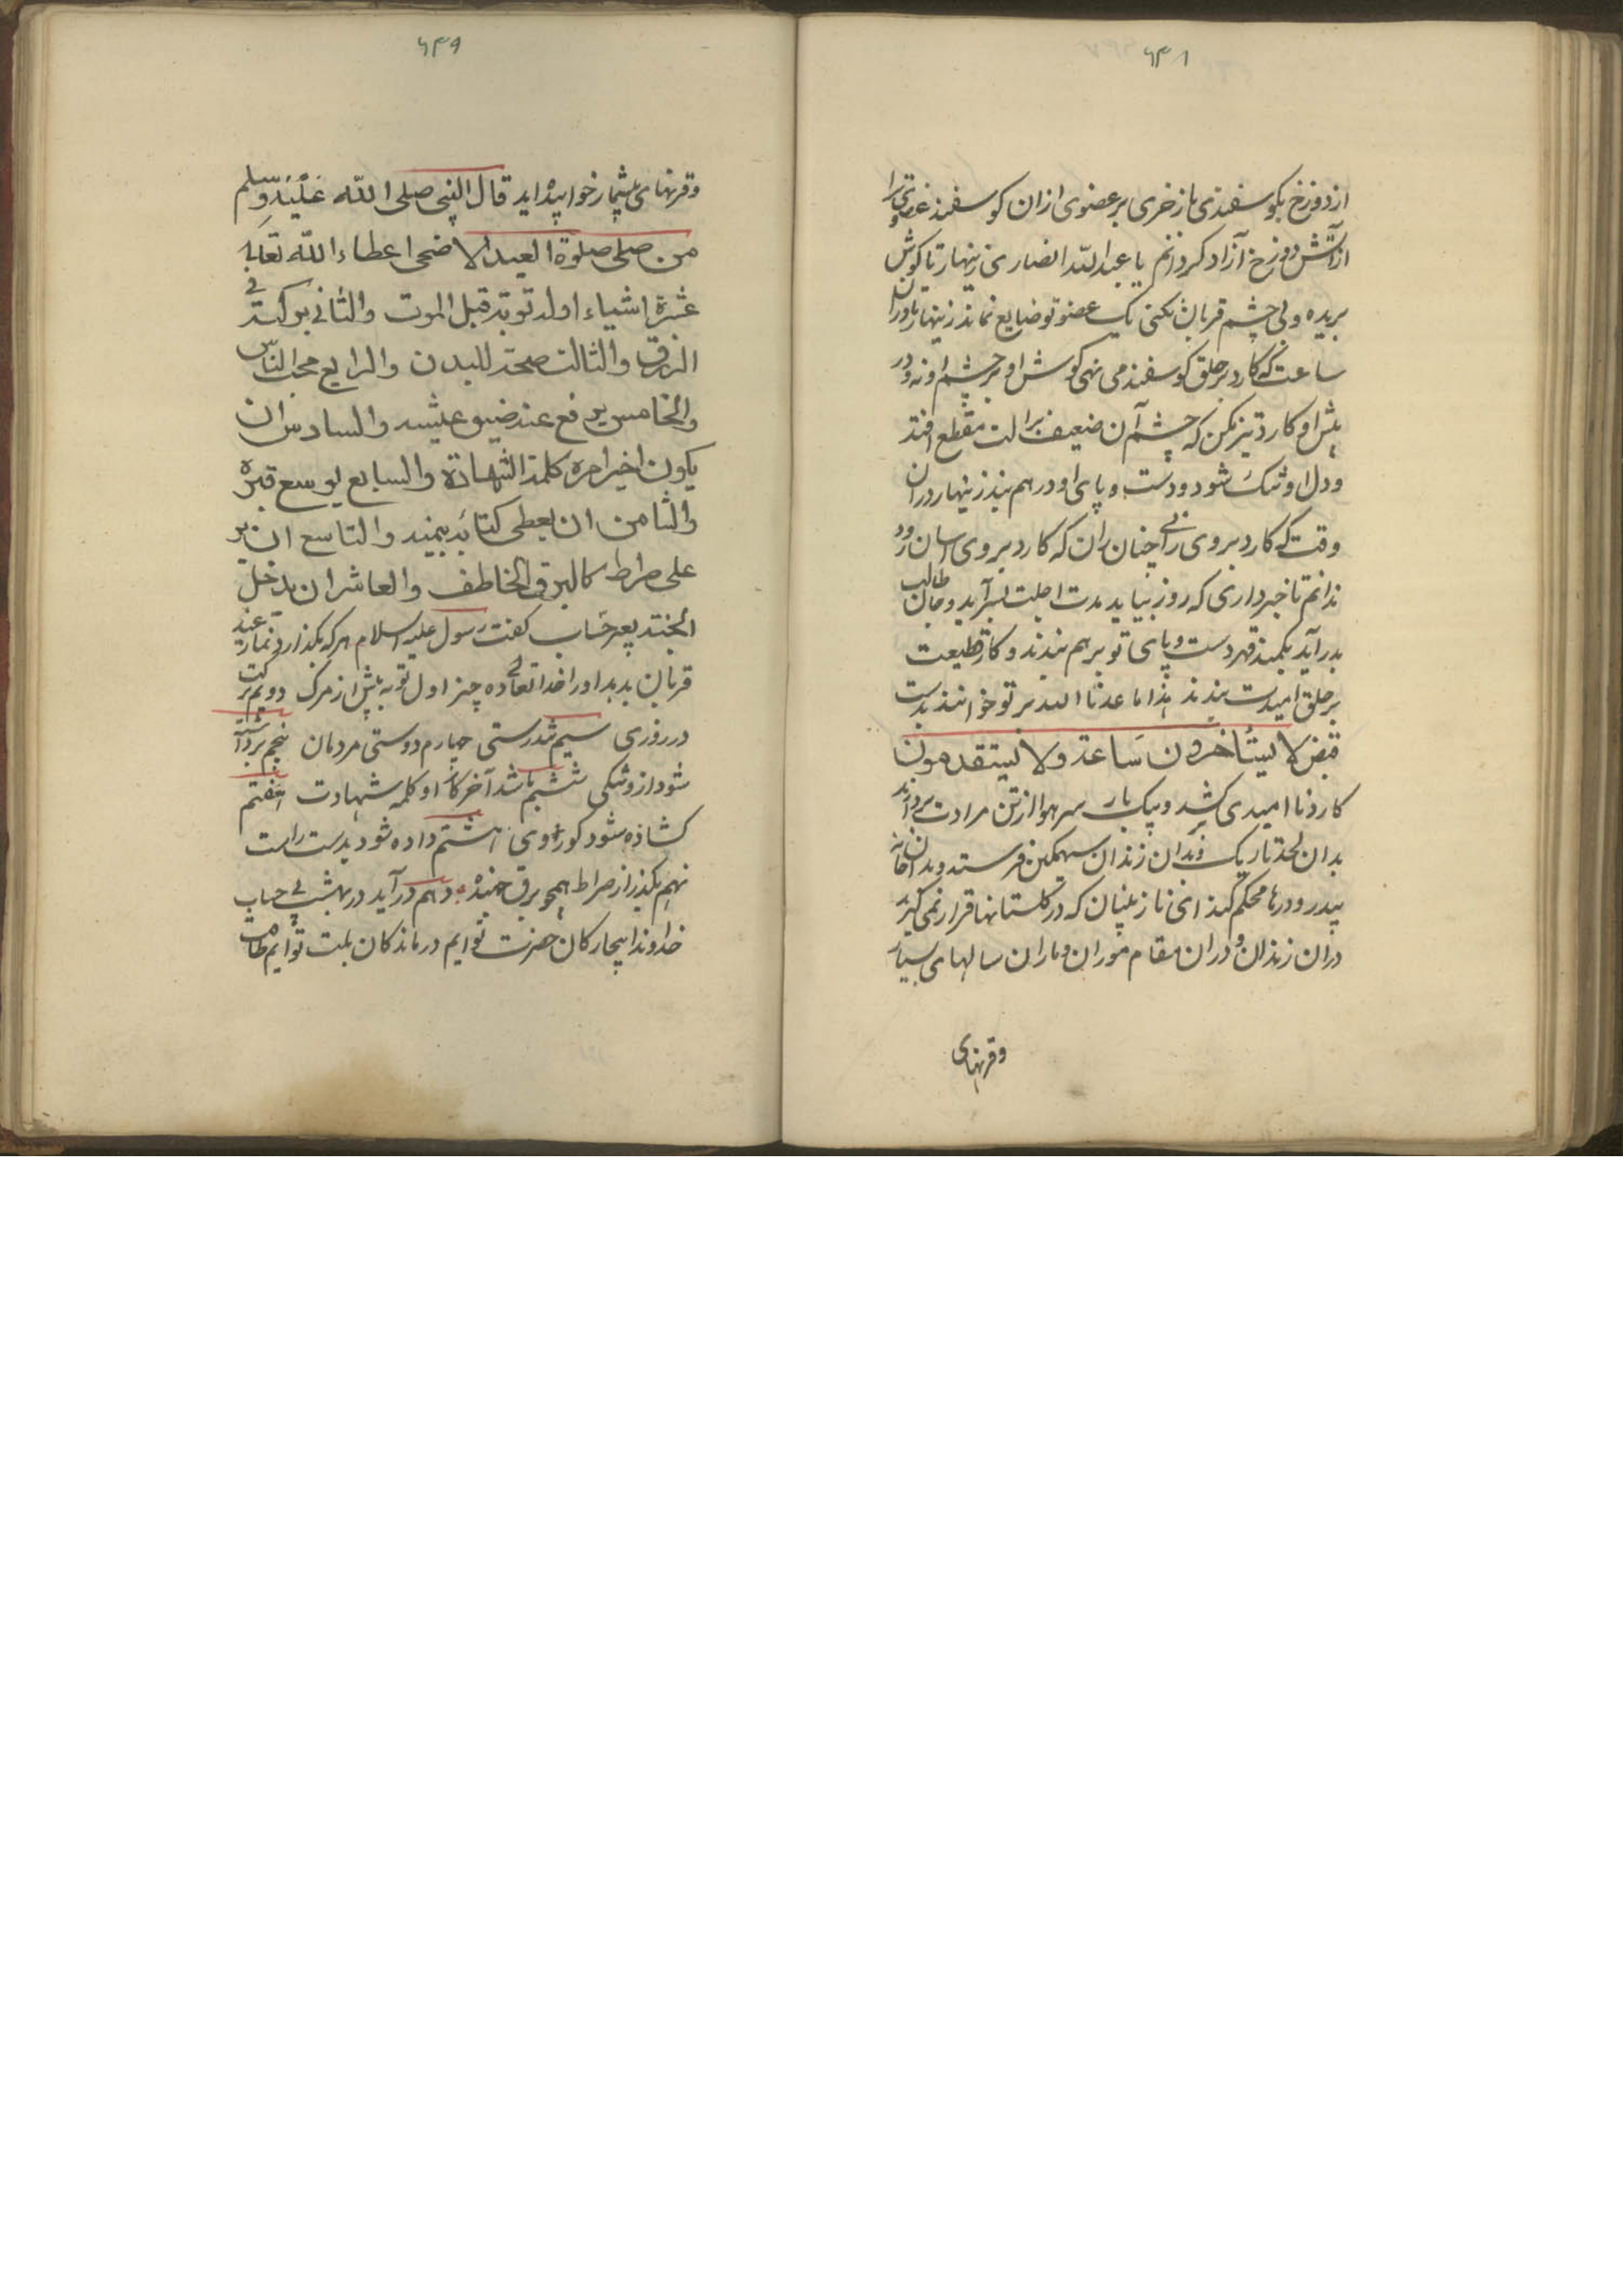 ۶۴۸
از دوزخ بکوسفندی باز خری بر عضوی از ان کوسفند عضوی ترا
از آتش دوزخ آزاد کردانم یا عبد الله انصاری زینهار تا کوش
بریده و بی چشم قربان نکنی یک عضو تو ضایع نماند زینهار تا دران
ساعت که کارد بر حلق کوسفند می نهی کوش او بر چشم او نه و در
پیش او کارد تیز مکن که چشم آن ضعیف بر الت مقطع افتد
و دل او تنک شود و دست و پای او در هم بند زینهار دران
وقت که کارد بروی رانی چنان ران که کارد بروی اسان رود
ندانم تا خبر داری که روز بیاید مدت اجلت بسر آید و طالب جان
بدر آید بکمند قهر دست و پای تو بر هم بندند و کارد قطیعت
بر حلق امیدت بنهند هذا ما عدنا الله بر تو خوانند بدست
قبض لا یستأخرون ساعة ولا یستقدمون
کارد نا امیدی کشد و بیک بار سر هوا از تن مرادت بردارند
بدان لحد تاریک و بدان زندان سهمکین فرستد و بدان خانه
بیدر و درها محکم کنند انی ناز بنیان که در کلستانها قرار نمی کیرند
دران زندان و دران مقام موران و ماران سالهای بسیار
وقرنهای
۶۴۹
وقرنهای بیشمار خوابیده اید قال النبی صلی الله علیه وسلم
من صلی صلوة العید الاضحی اعطاء الله تعالی
عشرة اشیاء اوله توبة قبل الموت والثانی برکة فی
الرزق والثالث صحة للبدن والرابع محب الناس
والخامس یرفع عنه ضیق عیشه والسادس ان
یکون اخیر امره کلمة الشهادة والسابع یوسع قبره
والثامن ان یعطی کتابه بیمینه والتاسع ان یمر
علی صراط کالبرق الخاطف والعاشر ان یدخل
الجنة بغیر حساب کفت رسول علیه السلام هر که بکذارد نماز عید
قربان بدهد اورا خدا تعالی ده چیز اول توبه پیش از مرک دوم برکت
در روزی سیم تندرستی چهارم دوستی مردمان پنجم برداشته
شود از وتنکی ششم باشد آخر کار او کلمه شهادت هفتم
کشاده شود کور وی هشتم داده شود بدست راست
نهم بکذرد از صراط همچو برق جهنده دهم در آید در بهشت بی حساب
خداوندا بیچارکان حضرت توایم درماندکان بلیت توایم